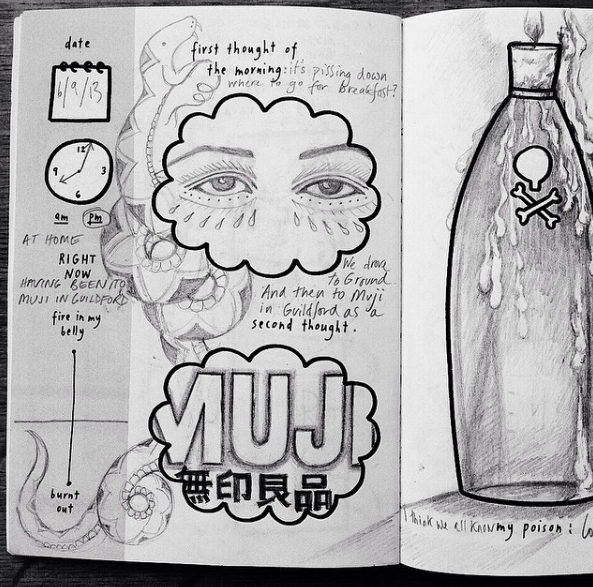 date
6/9/13
12
9
3
6
am pm
AT HOME
RIGHT
NOW
HAVING BEEN TO
MUJI IN GUILDFORD
fire in my
belly
burnt
out
first thought of
the morning: it's pissing down
where to go for Breakfast?
We drove
to Ground.
And then to Muji
in Guildford as a
second thought.
MUJI
無印良品
I think we all know my poison: